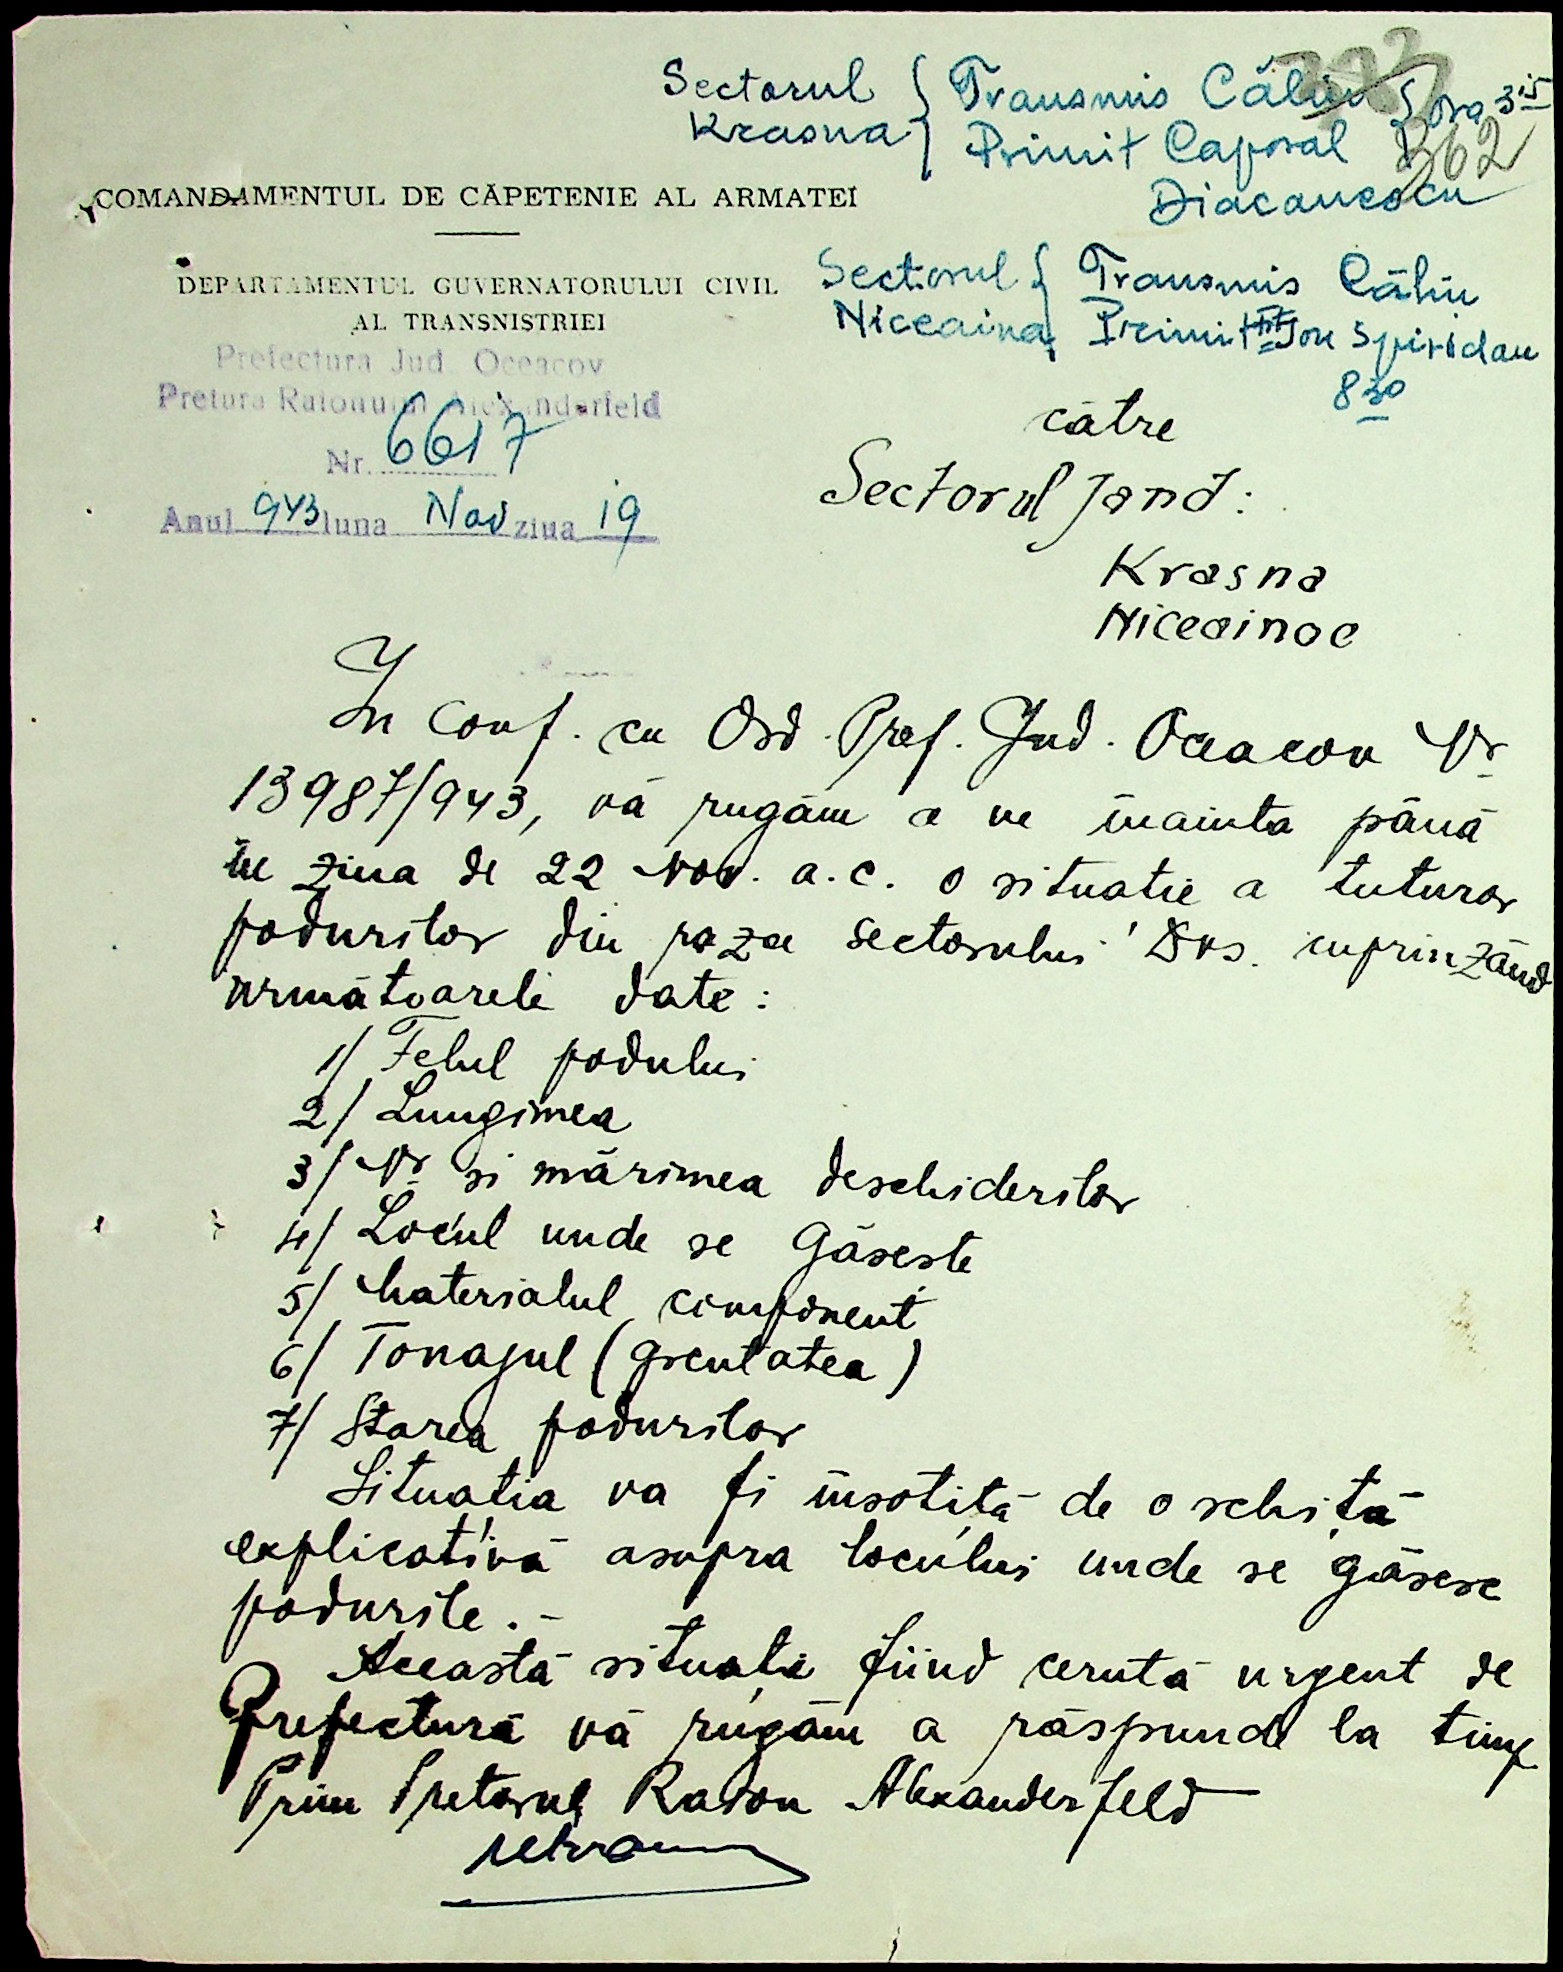 Sectorul { Transmis Căliu } ora 3 15
Krasna } Primit Caporal 362
Diacanescu
COMANDAMENTUL DE CĂPETENIE AL ARMATEI
DEPARTAMENTUL GUVERNATORULUI CIVIL
AL TRANSNISTRIEI
Sectorul { Transmis Căliu
Niceaina { Primit Ion Spiridan
8 30
Prefectura Jud. Oceacov
Pretura Raionului Alexanderfeld
Nr. 6617
Anul 943 luna Nov ziua 19
către
Sectorul Jand:
Krasna
Niceainoe
In Conf. cu Ord. Pref. Jud. Oceacov Nr
13987/943, vă rugăm a ne înainta până
în ziua de 22 Nov. a.c. o situatie a tuturor
podurilor din raza sectorului Dvs. cuprinzând
următoarele date:
1/ Felul podului
2/ Lungimea
3/ Nr si mărimea deschiderilor
4/ Locul unde se găseste
5/ Materialul component
6/ Tonajul (greutatea)
7/ Starea podurilor
Situatia va fi însotită de o schiță
explicativă asupra locului unde se găsesc
podurile.-
Această situatie fiind cerută urgent de
Prefectură vă rugăm a răspunde la timp
Prim Pretorul Raion Alexanderfeld